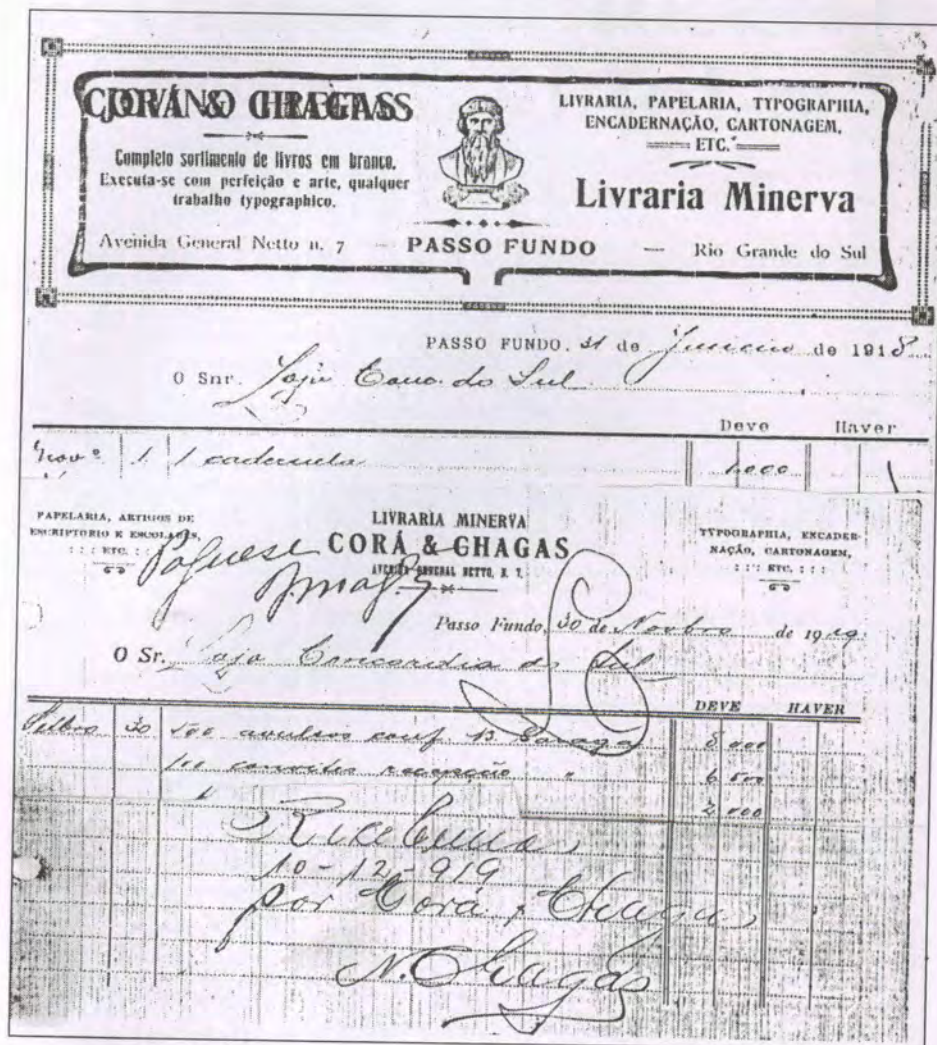 CORÁ & CHAGAS
Completo sortimento de livros em branco.
Executa-se com perfeição e arte, qualquer
trabalho typographico.
LIVRARIA, PAPELARIA, TYPOGRAPHIA,
ENCADERNAÇÃO, CARTONAGEM,
ETC.
Livraria Minerva
Avenida General Netto n. 7 — PASSO FUNDO — Rio Grande do Sul
PASSO FUNDO, 31 de de 1918
O Snr. Loja Conc. do Sul
Deve Haver
Novº 1 1 caderneta 1.000
PAPELARIA, ARTIGOS DE
ESCRIPTORIO E ESCOLARES,
::: ETC. :::
LIVRARIA MINERVA
CORÁ & CHAGAS
AVENIDA GENERAL NETTO, N. 7.
TYPOGRAPHIA, ENCADER-
NAÇÃO, CARTONAGEM,
::: ETC. :::
Paguese
Passo Fundo, 30 de Novbro de 1919
O Sr. Loja Concordia do Sul
DEVE HAVER
30 100 avulsos conf. 8 000
100 convites recepção " 6 500
Recebemos
10-12-919
por Corá & Chagas
N. Chagas